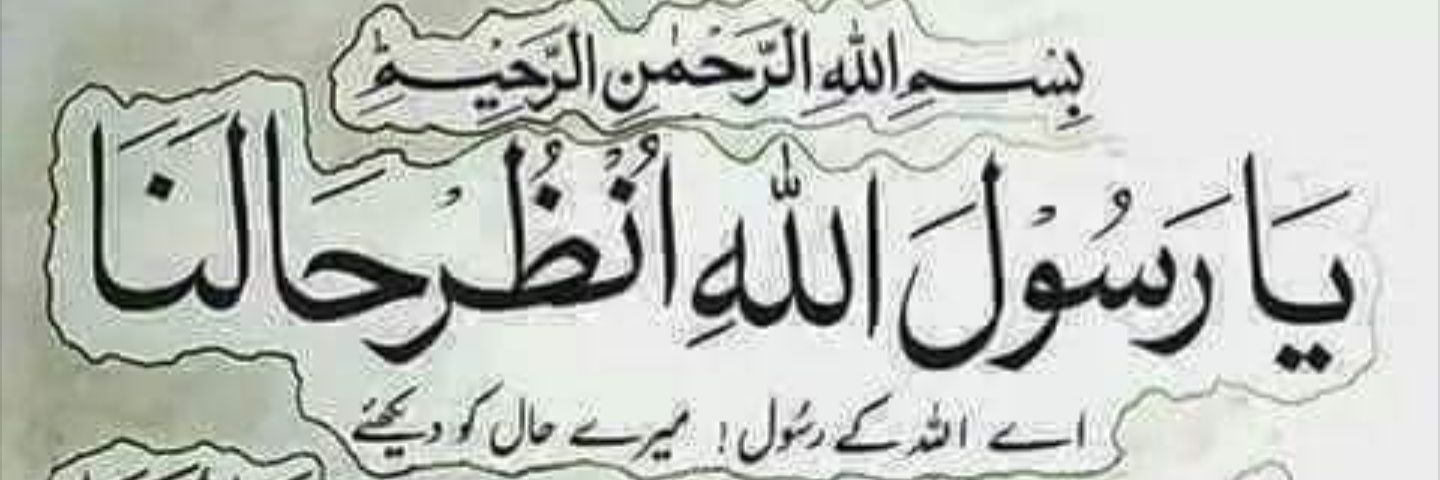 بِسْمِ اللهِ الرَّحْمٰنِ الرَّحِيْمِ
يَا رَسُوْلَ اللهِ انْظُرْ حَالَنَا
اے اللہ کے رسُول ! میرے حال کو دیکھئے